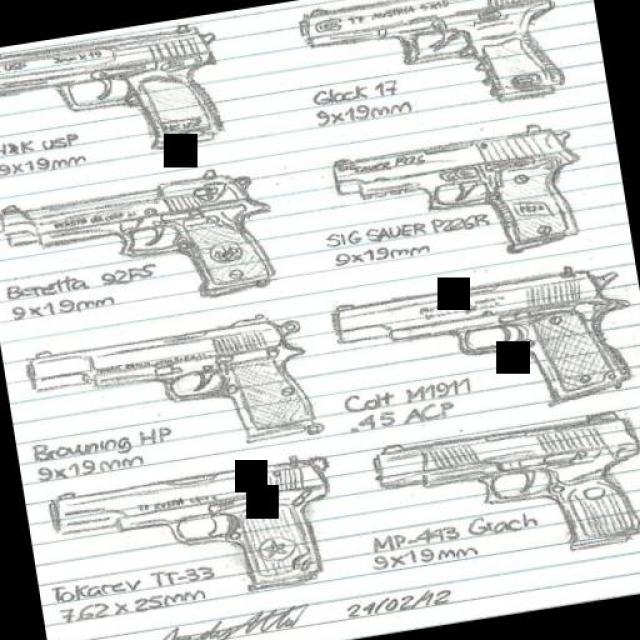 H&K USP
9x19mm
Glock 17
9x19mm
Beretta 92FS
9x19mm
SIG SAUER P226R
9x19mm
Browning HP
9x19mm
Colt M1911
.45 ACP
Tokarev TT-33
7.62 x 25mm
MP-443 Grach
9x19mm
21/02/12